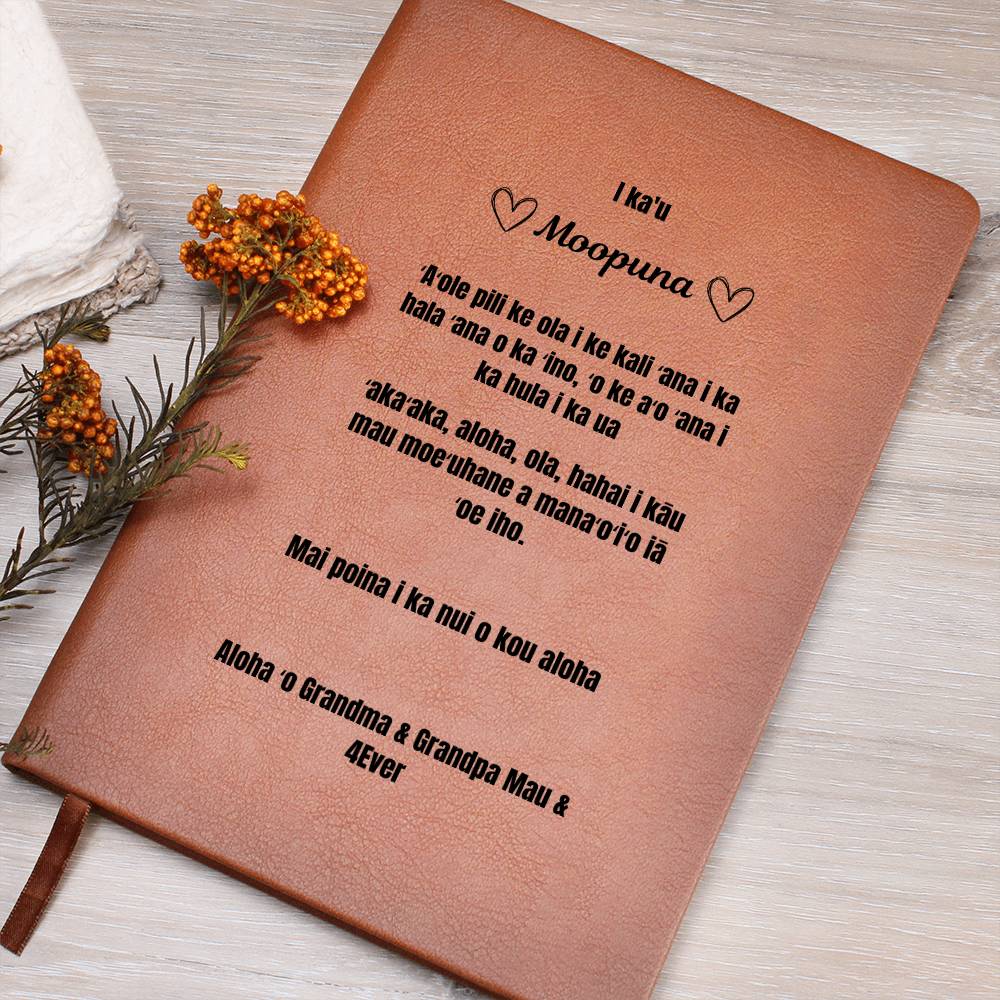 I ka'u
Moopuna
ʻAʻole pili ke ola i ke kali ʻana i ka
hala ʻana o ka ʻino, ʻo ke aʻo ʻana i
ka hula i ka ua
ʻakaʻaka, aloha, ola, hahai i kāu
mau moeʻuhane a manaʻoʻiʻo iā
ʻoe iho.
Mai poina i ka nui o kou aloha
Aloha ʻo Grandma & Grandpa Mau &
4Ever